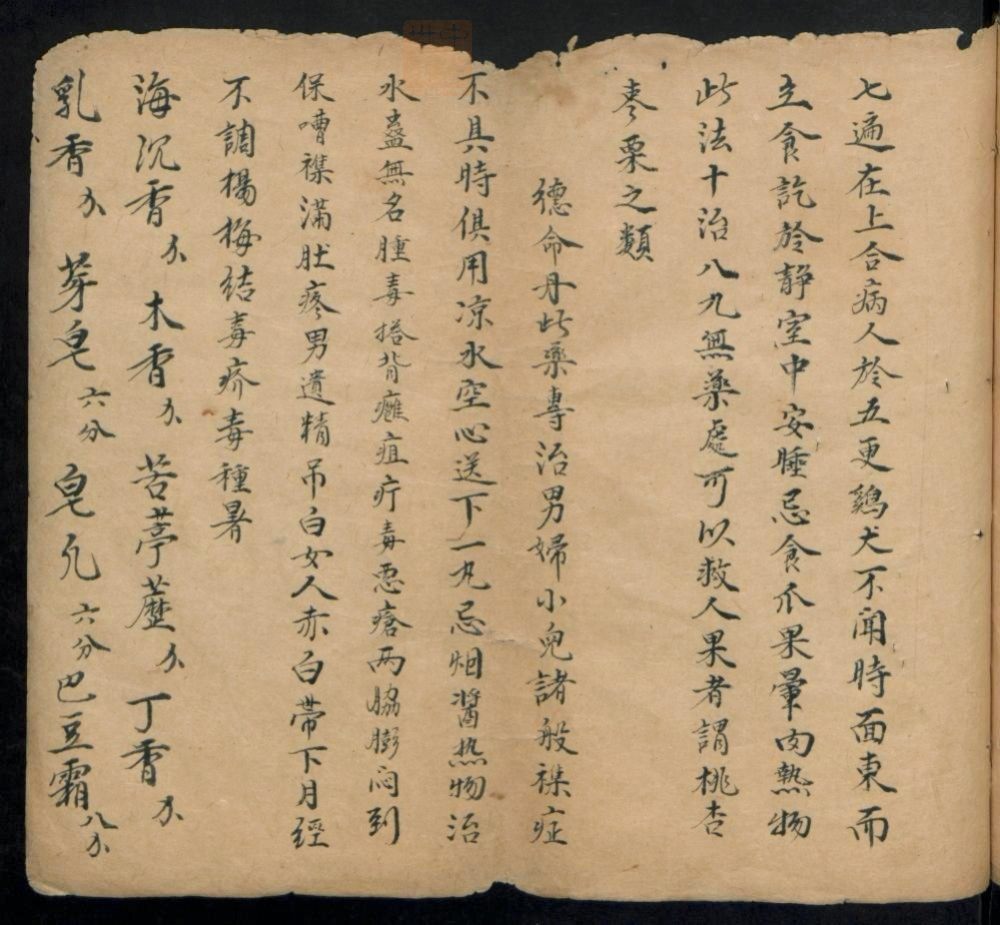 七遍在上合病人於五更鷄犬不闻時面東而
立食訖於静室中安睡忌食爪果暈肉熱物
此法十治八九無藥處可以救人果者謂桃杏
枣栗之類
德命丹此藥專治男婦小児諸般襍症
不具時俱用凉水空心送下一丸忌烟醬热物治
水蠱無名腫毒搭背癰疽疔毒悪瘡两脇膨闷到
保嘈襍滿肚疼男遺精吊白女人赤白带下月經
不調楊梅结毒疥毒種暑
海沉香 木香 苦葶藶 丁香
乳香 芽皂六分 皂凢六分 巴豆霜八分